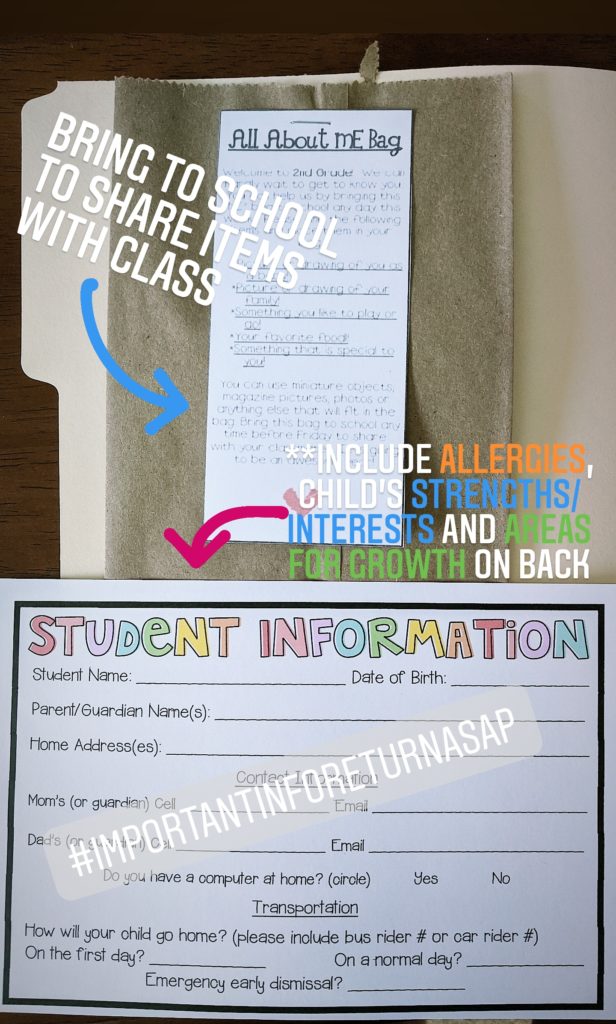 All About mE Bag
BRING TO SCHOOL
TO SHARE ITEMS
WITH CLASS
Welcome to 2nd Grade! We can
wait to get to know you
help us by bringing this
school any day this
the following
them in your
drawing of you as
*Picture drawing of your
family!
*Something you like to play or
do!
*Your favorite food!
*Something that is special to
you!
You can use miniature objects,
magazine pictures, photos or
anything else that will fit in the
bag. Bring this bag to school any
time before Friday to share
with your
to be an
**INCLUDE ALLERGIES,
CHILD'S STRENGTHS/
INTERESTS AND AREAS
FOR GROWTH ON BACK
STUDENT INFORMATION
Student Name: Date of Birth:
Parent/Guardian Name(s):
Home Address(es):
Contact Information
Mom's (or guardian) Cell Email
Dad's (or guardian) Cell Email
#IMPORTANTINFORETURNASAP
Do you have a computer at home? (circle) Yes No
Transportation
How will your child go home? (please include bus rider # or car rider #)
On the first day? On a normal day?
Emergency early dismissal?